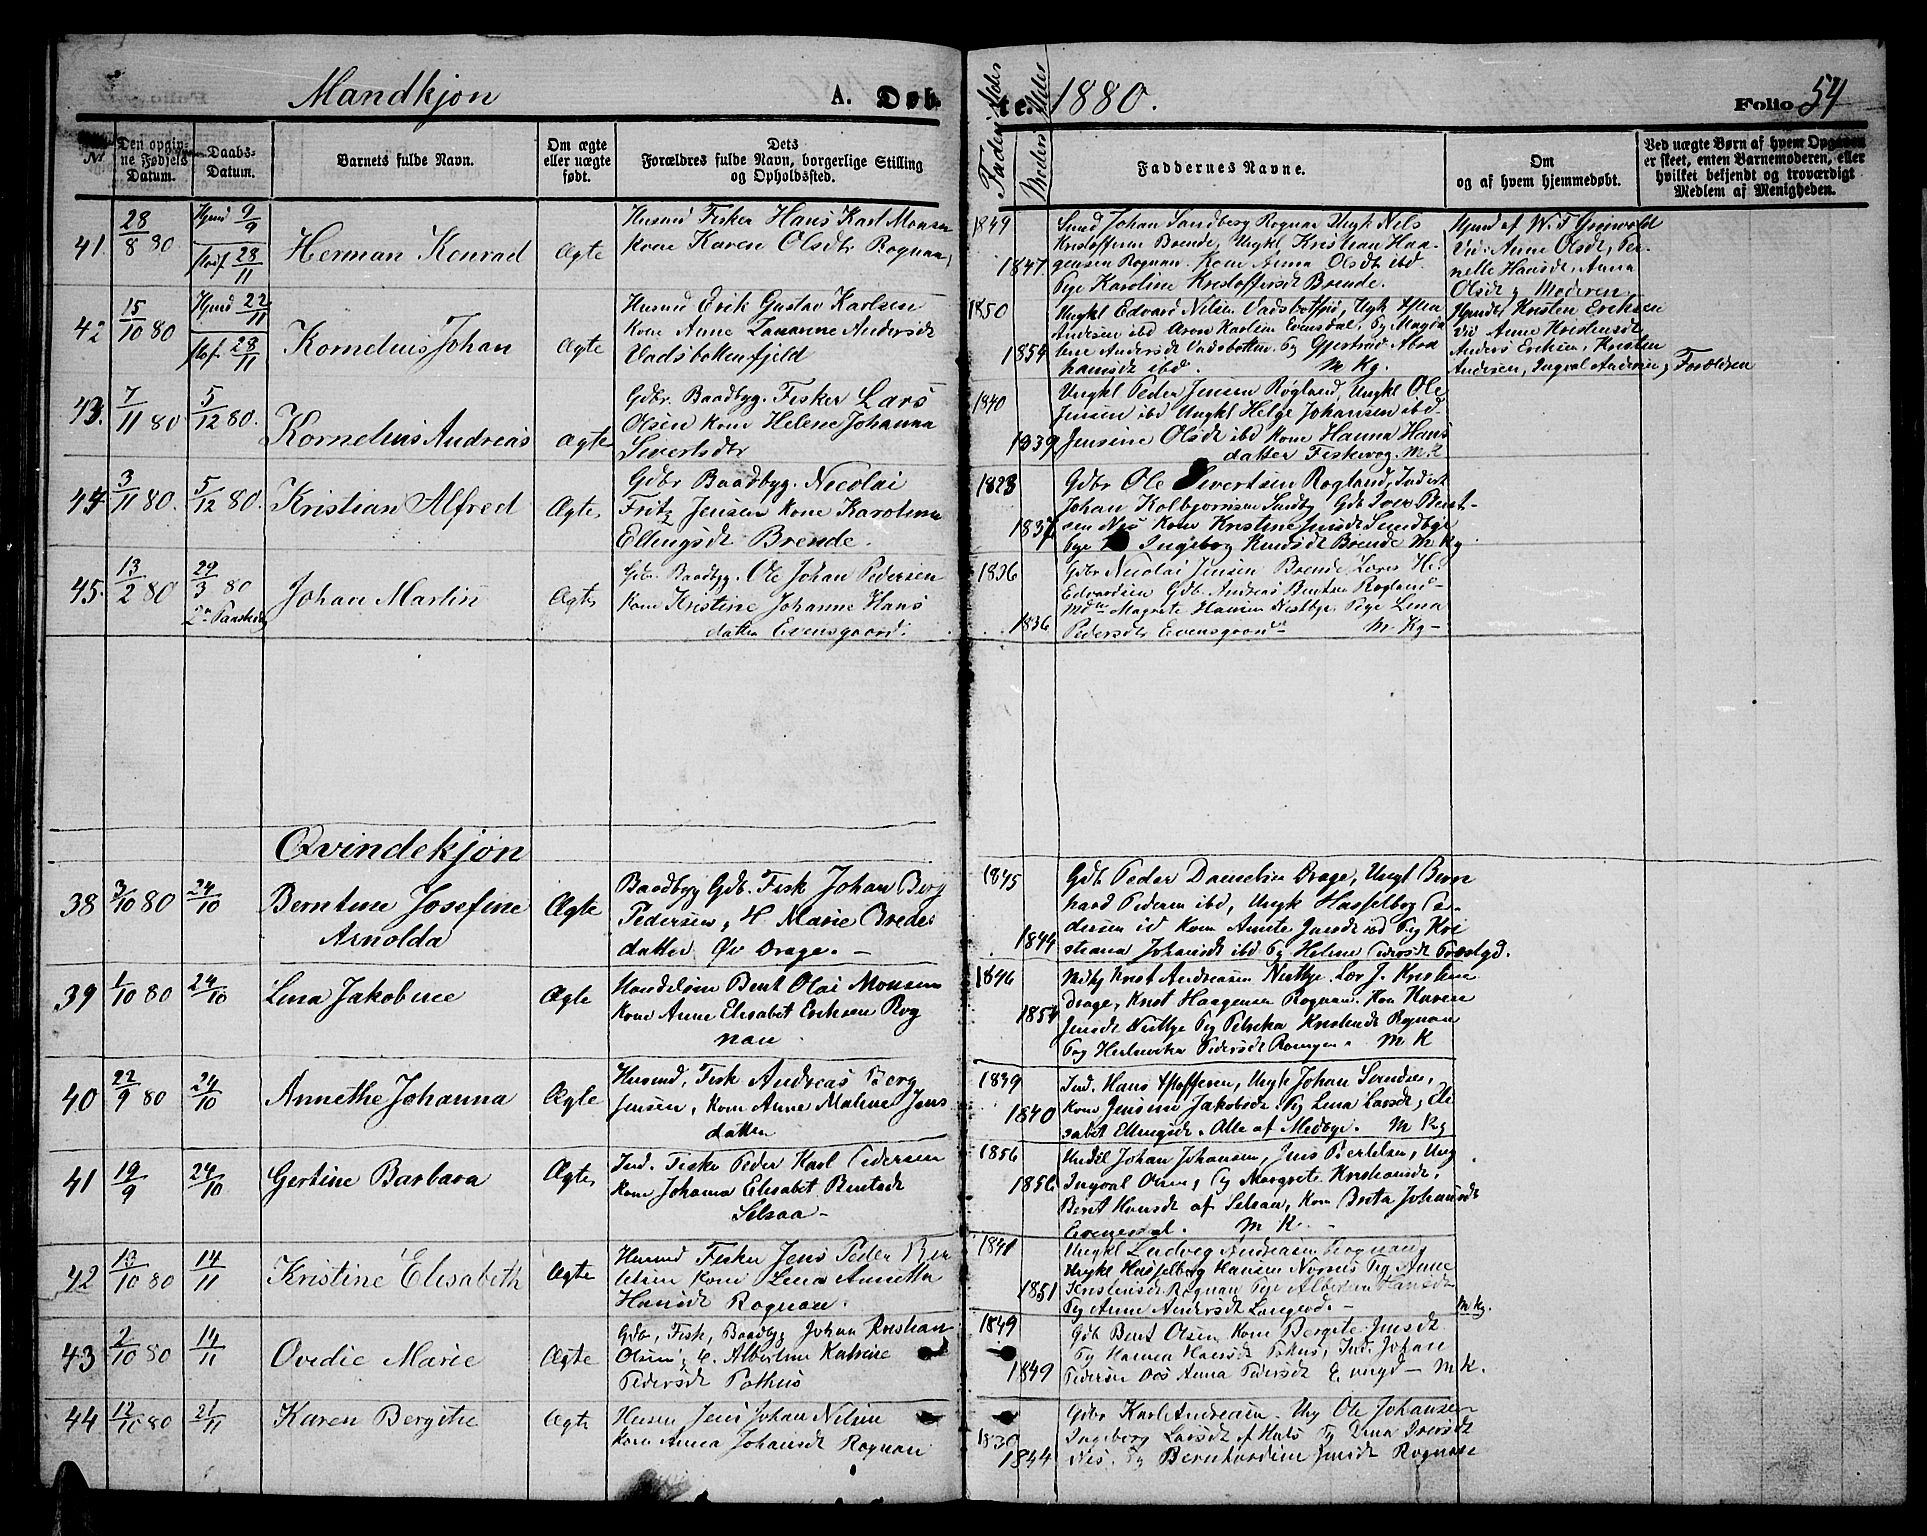 Mandkjøn
A. Døb
te. 1880.
Folio 54
Nr.
Den opgivne Fødsels Datum.
Daabs-Datum.
Barnets fulde Navn.
Om ægte eller uægte født.
Dets Forældres fulde Navn, borgerlige Stilling og Opholdssted.
Faders Alder
Moders Alder
Faddernes Navne.
Om og af hvem hjemmedøbt.
Ved uægte Børn af hvem Opgaven er skeet, enten Barnemoderen, eller hvilket bekjendt og troværdigt Medlem af Menigheden.
41. 28/8 80 Hjmd 9/9 28/11 Herman Konrad Ægte
Husmd Fisker Hans Karl Monsen
Kone Karen Olsdtr Rognan
1849 1847
Johan Sandberg Rognan Ungk Nels
Kristoffersen Brende, Ungkl Kristian Haa-
gensen Rognan. Kone Anna Olsdtr ibd
Pige Karoline Kristoffersdt Brende.
Hjmd af
Anne Olsdt,
nelle Hansdt, Anna
Olsdt, Moderen.
42 15/10 80 Hjmd 22/11 28/11 Kornelius Johan Ægte
Husmd Erik Gustav Karlsen
Kone Anne Andersdt
Vadsbottenfjeld
1850 1854
Ungkl Edvard Nilsen
Andersen ibd Aron Karlsen Evensdal, Pg Magda
lene Andersdt Vadsbotten Pg Gjertrud Abra
hamsdt ibd. M Kg.
Hjmdt Kristen Eriksen
Anne Kristensdt
Anders Eriksen, Kristen
Andersen, Ingval Andersen, Forældren
43. 7/11 80 5/12 80. Kornelius Andreas Ægte
Gdbr. Baadbyg. Fisker Lars
Olsen Kone Helene Johanna
Sivertsdtr
1840 1839
Ungkl Peder Jensen Røgland, Ungkl Ole
Jensen ibd Ungkl Helge Johansen ibd.
Jensine Olsdt ibd Kone Hanna Hans
datter Fiskevog. M.
44. 3/11 80. 5/12 80. Kristian Alfred Ægte
Gdbr Baadbyg. Nicolai
Fritz Jensen Kone Karoline
Ellingsdt Brende.
1828 1837
Gdbr Ole Sivertsen Røgland,
Johan Kolbjørnsen Sundby Gdb Iver Bent-
sen Nes Kone Kristine Jensdt Sundbye
Pige Ingeborg Knudsdt Brende M Kg
45. 13/2 80 29/3 80 2den Paaskedag Johan Martin Ægte
Gdbr. Baadbyg. Ole Johan Pedersen
Kone Kristine Johanne Hans
datter Evensgaard.
1836 1836
Gdbr Nicolai Jensen Brende, Lars
Edvardsen Gdb. Andreas Bentsen Røgland
Magrete Hansen Nestbye, Pige Lena
Pedersdtr Evensgaard M. Kg
Qvindekjøn
38 3/10 80 24/10 Berntine Josefine Arnolda Ægte
Baadbyg Gdb. Fisk Johan Berg
Pedersen, H Marie Bredes
datter Øv Drage.
1845 1844
Gdb Peder Danielsen Drage, Ungk Bern
hard Pedersen ibd, Ungk Hasselberg Pe-
dersen id Kone Annte Jensdt ibd Pg Kri
stiana Johansdt ibd Pg Helene Pedersdt Præstgd.
39 1/10 80 24/10 Lena Jakobine Ægte
Handelsm Bent Olai Monsen
Kone Anne Elisabet Eriksen Rog
nan.
1846 1854
Krist Andreasen Nestbye. Lars J. Kristens
Drage, Krist Haagensen Rognan. Kon Karen
Jensdt Nestbye Pg Petrika Kristensdt Rognan
Pg Hedevika Pedersdt M K
40 22/9 80 24/10 Annethe Johanna Ægte
Husmd, Fisk Andreas Berg
Jensen, Kone Anne Maline Jens
datter
1839 1840
Ind. Hans Kstoffersen, Ungk Johan
Kone Jensine Jakobsdt. Pg Lena Larsdt, Eli
sabet Ellingsdt. Alle af Medbye. M Kg
41 19/9 24/10 Gertine Barbara Ægte
Ind. Fisker Peder Karl Pedersen
Kone Johanna Elisabet Bentsdt
Selsaa
1856 1856
Johan Johansen, Jens Bertelsen, Ung
Ingval Olsen, Pg Margrete Kristiansdt,
Bent Hansdt af Selsaa, Kone Berta Johansdt
Evenesdal. M K.
42 10/10 80 14/11 Kristine Elisabeth Ægte
Husmd Fisker Jens Peder Ber
telsen Kone Lena Annetta
Hansdt Rognan.
1841 1851
Ungkl Ludvig Andreasen Rognan,
Ungkl Hasselberg Hansen Nesnes Pg Anne
Kristensdt Rognan Pige Albertin Hansdt
Pg Anne Andersdt M Kg.
43 2/10 80 14/11 Ovedie Marie Ægte
Gdb, Fisk, Baadbyg Johan Kristian
Olsen, Albertine Katrine
Pedersdt Pothus
1849 1849
Gdb Bent Olsen Kone Bergite Jensdt
Pg Hanna Hansdt Pothus, Ind. Johan
Pedersen Anna Pedersdt M K.
44 12/10 80 21/11 Karen Bergithe Ægte
Husm Jens Johan Nilsen
Kone Anna Johansdt Rognan
1830 1844
Gdbr Karl Andreasen. Ung Ole Johansen
Ingeborg Larsdt Pg Lina Iversdt
Nes. Pg Bernhardine Jensdt Rognan